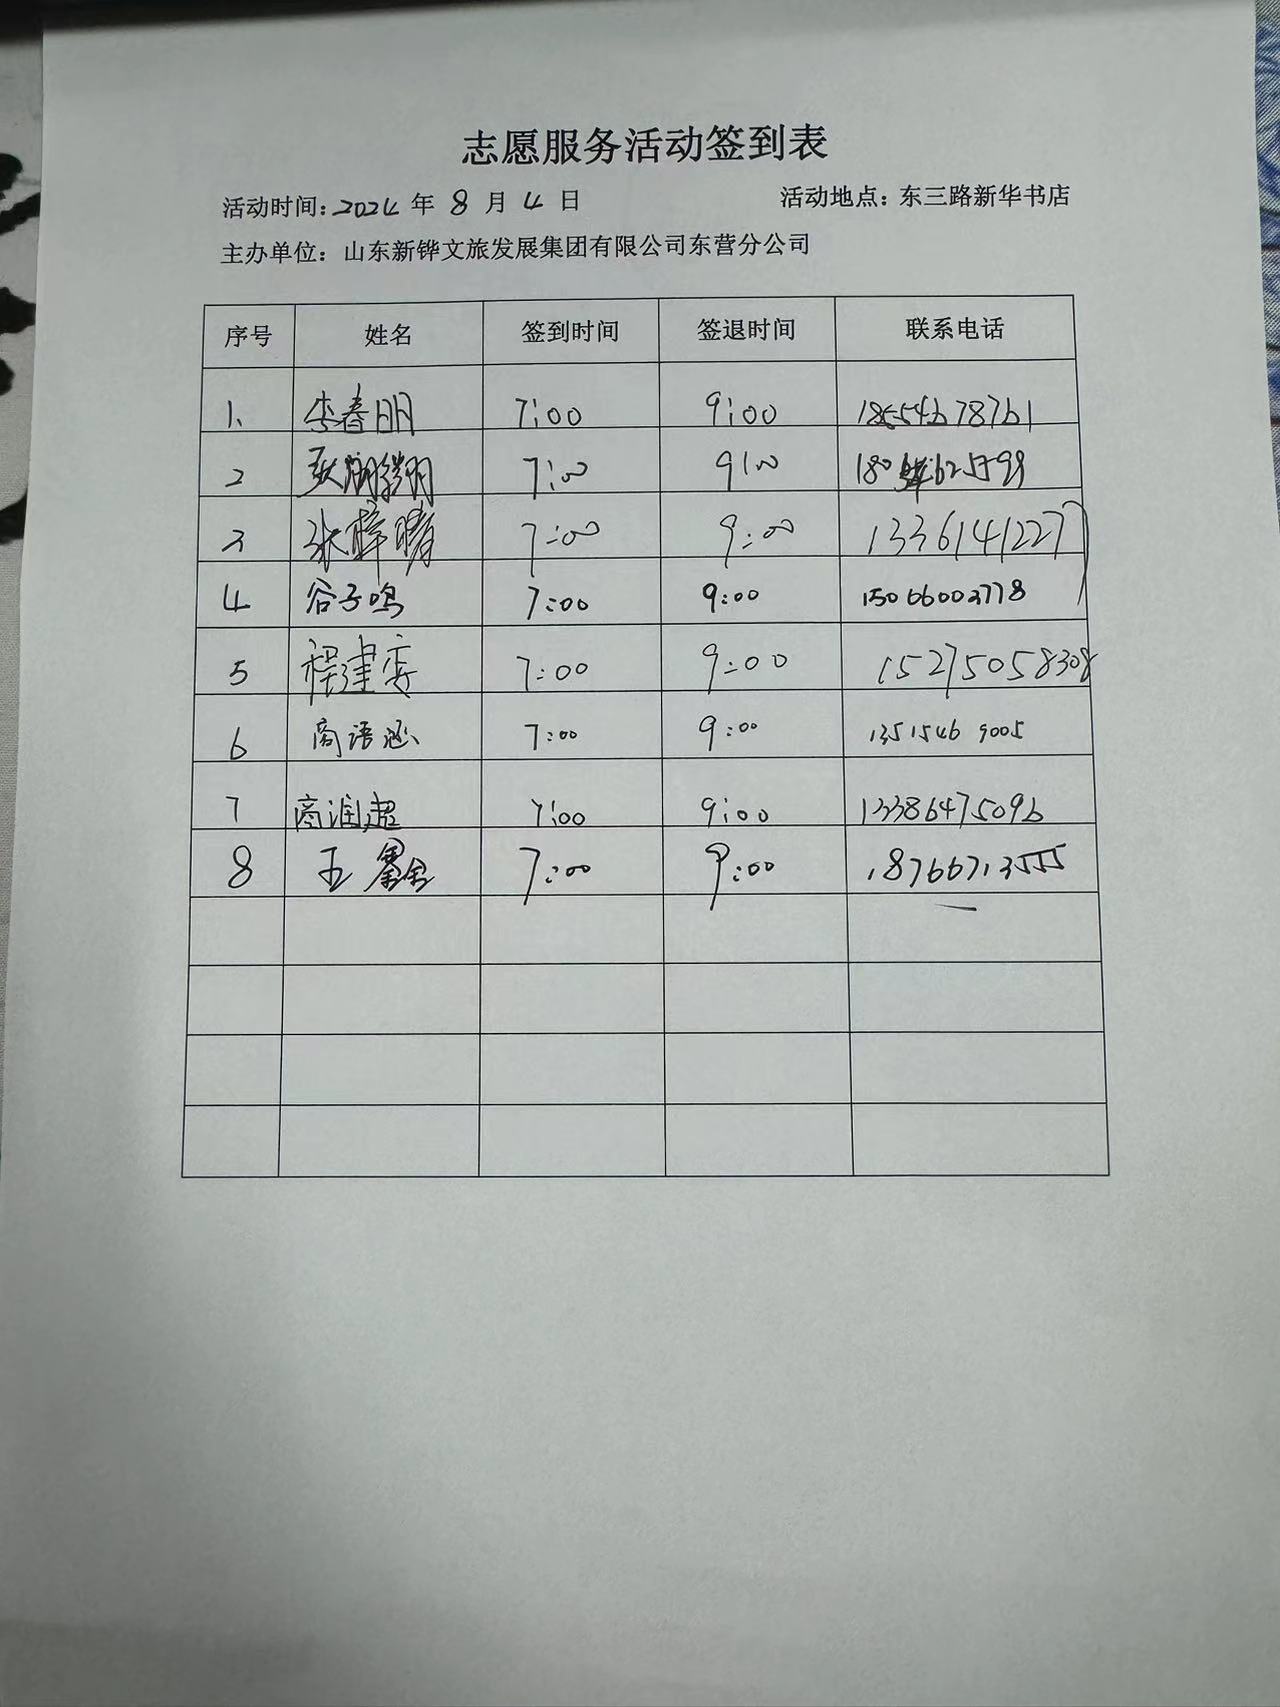 志愿服务活动签到表
活动时间：2024 年 8 月 4 日 活动地点：东三路新华书店
主办单位：山东新铧文旅发展集团有限公司东营分公司
序号 姓名 签到时间 签退时间 联系电话
1、 李春明 7:00 9:00 18554678761
2 7:00 9:00
3 张梓晴 7:00 9:00 13361412277
4 谷子鸣 7:00 9:00 15066002778
5 程建 7:00 9:00 15275058308
6 商语涵 7:00 9:00 13515469005
7 商润超 7:00 9:00 13386475096
8 王 7:00 9:00 18766713555